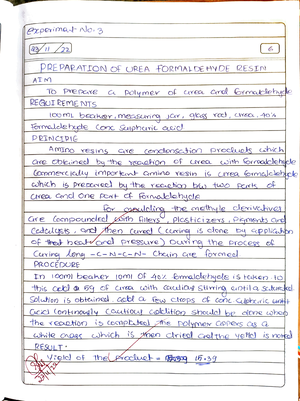 Experiment No: 3
03/11/22 6
PREPARATION OF UREA FORMALDEHYDE RESIN
AIM
To Prepare a Polymer of urea and formaldehyde
REQUIREMENTS
100ml beaker, measuring jar, glass rod, urea, 40%
Formaldehyde conc Sulphuric acid
PRINCIPLE
Amino resins are condensation products which
are obtained by the reaction of urea with formaldehyde
Commercially important amino resin is urea formaldehyde
which is prepared by the reaction b/w two parts of
urea and one part of formaldehyde
For moulding the methyle derivatives
are compounded with fillers, plasticizers, pigments and
catalysts, and then cured (curing is done by application
of heat and pressure) During the process of
curing long -C-N-C-N- chain are formed
PROCEDURE
In 100ml beaker 10ml of 40% formaldehyde is taken. To
this add 5g of urea with stirring until a saturated
solution is obtained add a few drops of conc sulphuric
acid continously cautious addition should be done when
the reaction is completed, the polymer as a
white mass which is then dried and the yeild is noted
RESULT:
Yield of the product = 15.39